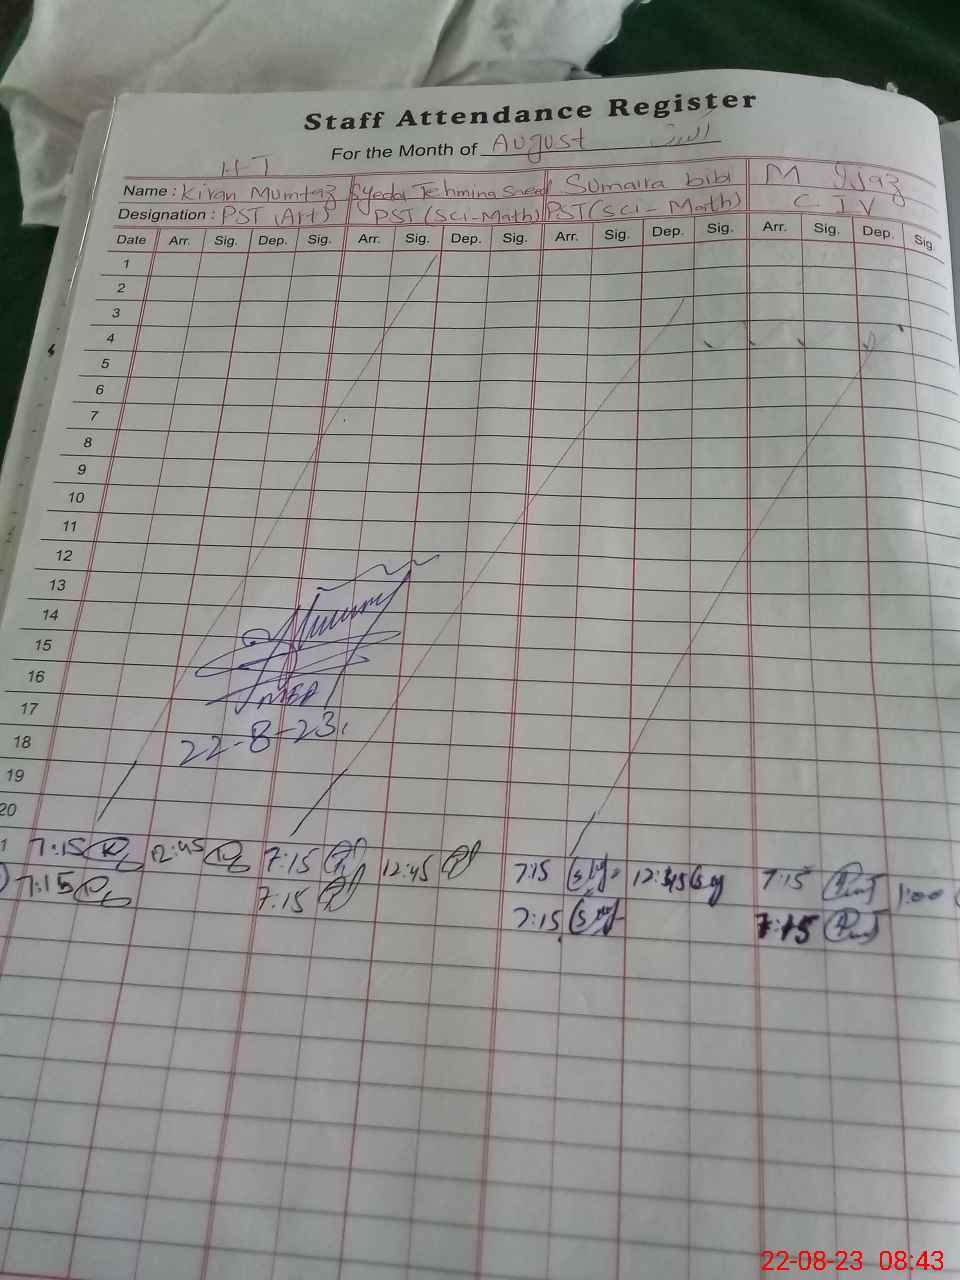 Staff Attendance Register
For the Month of August اگست
H-T
Name : Kiran Mumtaz Syeda Tehmina Sumaira bibi M Ijaz
Designation : PST (Art) PST (Sci-Math) PST (Sci-Math) C-IV
Date Arr. Sig. Dep. Sig. Arr. Sig. Dep. Sig. Arr. Sig. Dep. Sig. Arr. Sig. Dep. Sig.
1
2
3
4
5
6
7
8
9
10
11
12
13
14
15
16
17
18
19
20
22-8-23
1 7:15 12:45 7:15 12:45 7:15 12:45 7:15 1:00
7:15 7:15 7:15 7:15
22-08-23 08:43